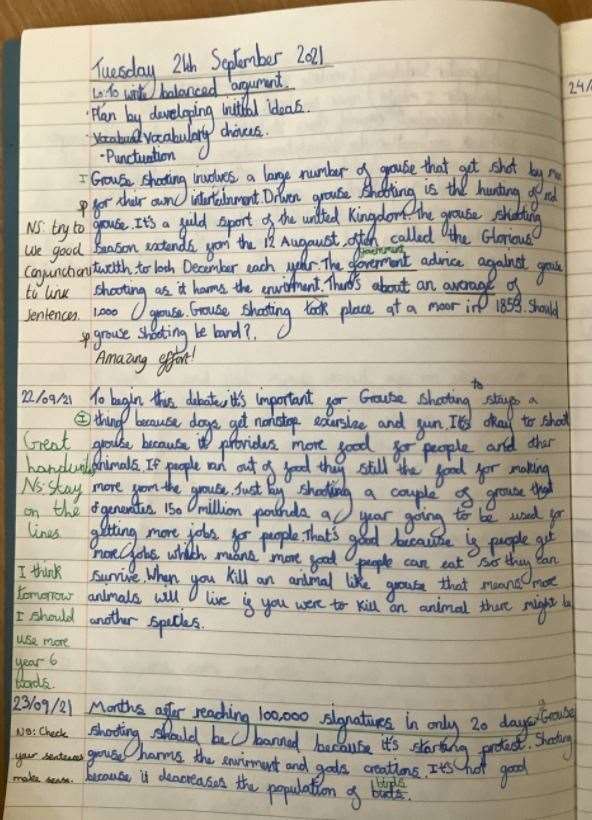 Tuesday 21th September 2021
Lo: To write balanced argument.
• Plan by developing initial ideas.
• Vocabual vocabulary choices.
• Punctuation
24/
I Grouse shooting involves a large number of grouse that get shot by me
p for their own intertainment. Driven grouse shooting is the hunting of red
grouse. It's a feild sport of the united Kingdom. The grouse shooting
season extends from the 12 Augaust, often called the Glorious
government
twelth to 10th December each year. The goverment advice against grouse
shooting as it harms the envirment. There's about an average of
1,000 grouse. Grouse Shooting took place at a moor in 1853. Should
sp grouse shooting be band?.
Amazing effort!
NS: try to
use good
conjunctions
to link
sentences.
22/09/21
to
To begin this debate, it's important for Grouse shooting stays a
I thing because dogs get nonstop exersise and fun. It's okay to shoot
grouse because it provides more food for people and other
animals. If people ran out of food they still the food for making
more from the grouse. Just by shooting a couple of grouse that
generates 150 million pounds a year going to be used for
getting more jobs for people. That's good because if people get
more jobs which means more food people can eat so they can
survive. When you kill an animal like grouse that means more
animals will live if you were to kill an animal there might be
another species.
Great
handwriting
NS: Stay
on the
lines.
I think
tomorrow
I should
use more
year 6
words.
23/09/21
Months after reaching 100,000 signatures in only 20 days, Grouse
shooting should be banned because it's starting protest. Shooting
grouse harms the envirment and gods creations. It's not good
birds
because it deacreases the population of birds.
NS: Check
your sentences
make sense.